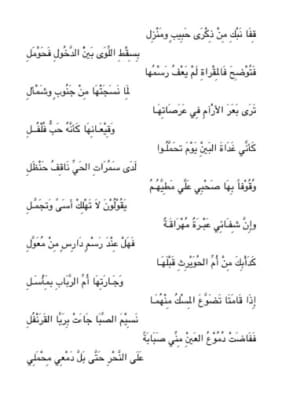 قِفَا نَبْكِ مِنْ ذِكْرَى حَبِيبٍ وَمَنْزِلِ
بِسِقْطِ اللِّوَى بَيْنَ الدَّخُولِ فَحَوْمَلِ
فَتُوْضِحَ فَالمِقْرَاةِ لَمْ يَعْفُ رَسْمُهَا
لِمَا نَسَجَتْهَا مِنْ جَنُوبٍ وَشَمْأَلِ
تَرَى بَعَرَ الأَرْآمِ فِي عَرَصَاتِهَا
وَقِيْعَانِهَا كَأَنَّهُ حَبُّ فُلْفُلِ
كَأَنِّي غَدَاةَ البَيْنِ يَوْمَ تَحَمَّلُوا
لَدَى سَمُرَاتِ الحَيِّ نَاقِفُ حَنْظَلِ
وُقُوْفاً بِهَا صَحْبِي عَلَّي مَطِيَّهُمُ
يَقُوْلُوْنَ لاَ تَهْلِكْ أَسَىً وَتَجَمَّلِ
وإِنَّ شِفَائِي عَبْرَةٌ مُهْرَاقَةٌ
فَهَلْ عِنْدَ رَسْمٍ دَارِسٍ مِنْ مُعَوَّلِ
كَدَأْبِكَ مِنْ أُمِّ الحُوَيْرِثِ قَبْلَهَا
وَجَارَتِهَا أُمِّ الرَّبَابِ بِمَأْسَلِ
إِذَا قَامَتَا تَضَوَّعَ المِسْكُ مِنْهُمَا
نَسِيْمَ الصَّبَا جَاءَتْ بِرَيَّا القَرَنْفُلِ
فَفَاضَتْ دُمُوْعُ العَيْنِ مِنِّي صَبَابَةً
عَلَى النَّحْرِ حَتَّى بَلَّ دَمْعِي مِحْمَلِي